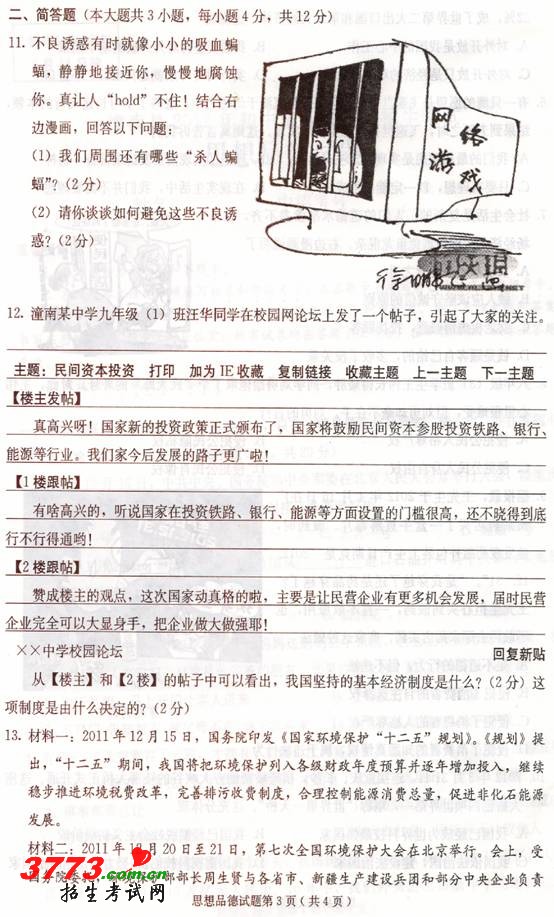 二、简答题（本大题共3小题，每小题4分，共12分）
11. 不良诱惑有时就像小小的吸血蝙
蝠，静静地接近你，慢慢地腐蚀
你。真让人“hold”不住！结合右
边漫画，回答以下问题：
(1) 我们周围还有哪些“杀人蝙
蝠”？(2分)
(2) 请你谈谈如何避免这些不良诱
惑？(2分)
网络游戏
12. 潼南某中学九年级（1）班汪华同学在校园网论坛上发了一个帖子，引起了大家的关注。
主题：民间资本投资 打印 加为IE收藏 复制链接 收藏主题 上一主题 下一主题
【楼主发帖】
真高兴呀！国家新的投资政策正式颁布了，国家将鼓励民间资本参股投资铁路、银行、
能源等行业。我们家今后发展的路子更广啦！
【1楼跟帖】
有啥高兴的，听说国家在投资铁路、银行、能源等方面设置的门槛很高，还不晓得到底
行不行得通哟！
【2楼跟帖】
赞成楼主的观点，这次国家动真格的啦，主要是让民营企业有更多机会发展，届时民营
企业完全可以大显身手，把企业做大做强耶！
××中学校园论坛 回复新贴
从【楼主】和【2楼】的帖子中可以看出，我国坚持的基本经济制度是什么？(2分) 这
项制度是由什么决定的？(2分)
13. 材料一：2011年12月15日，国务院印发《国家环境保护“十二五”规划》。《规划》提
出，“十二五”期间，我国将把环境保护列入各级财政年度预算并逐年增加投入，继续
稳步推进环境税费改革，完善排污收费制度，合理控制能源消费总量，促进非化石能源
发展。
材料二：2011年12月20日至21日，第七次全国环境保护大会在北京举行。会上，受
国务院委托，环境保护部部长周生贤与各省市、新疆生产建设兵团和部分中央企业负责
3773.com.cn
招生考试网
思想品德试题第3页（共4页）